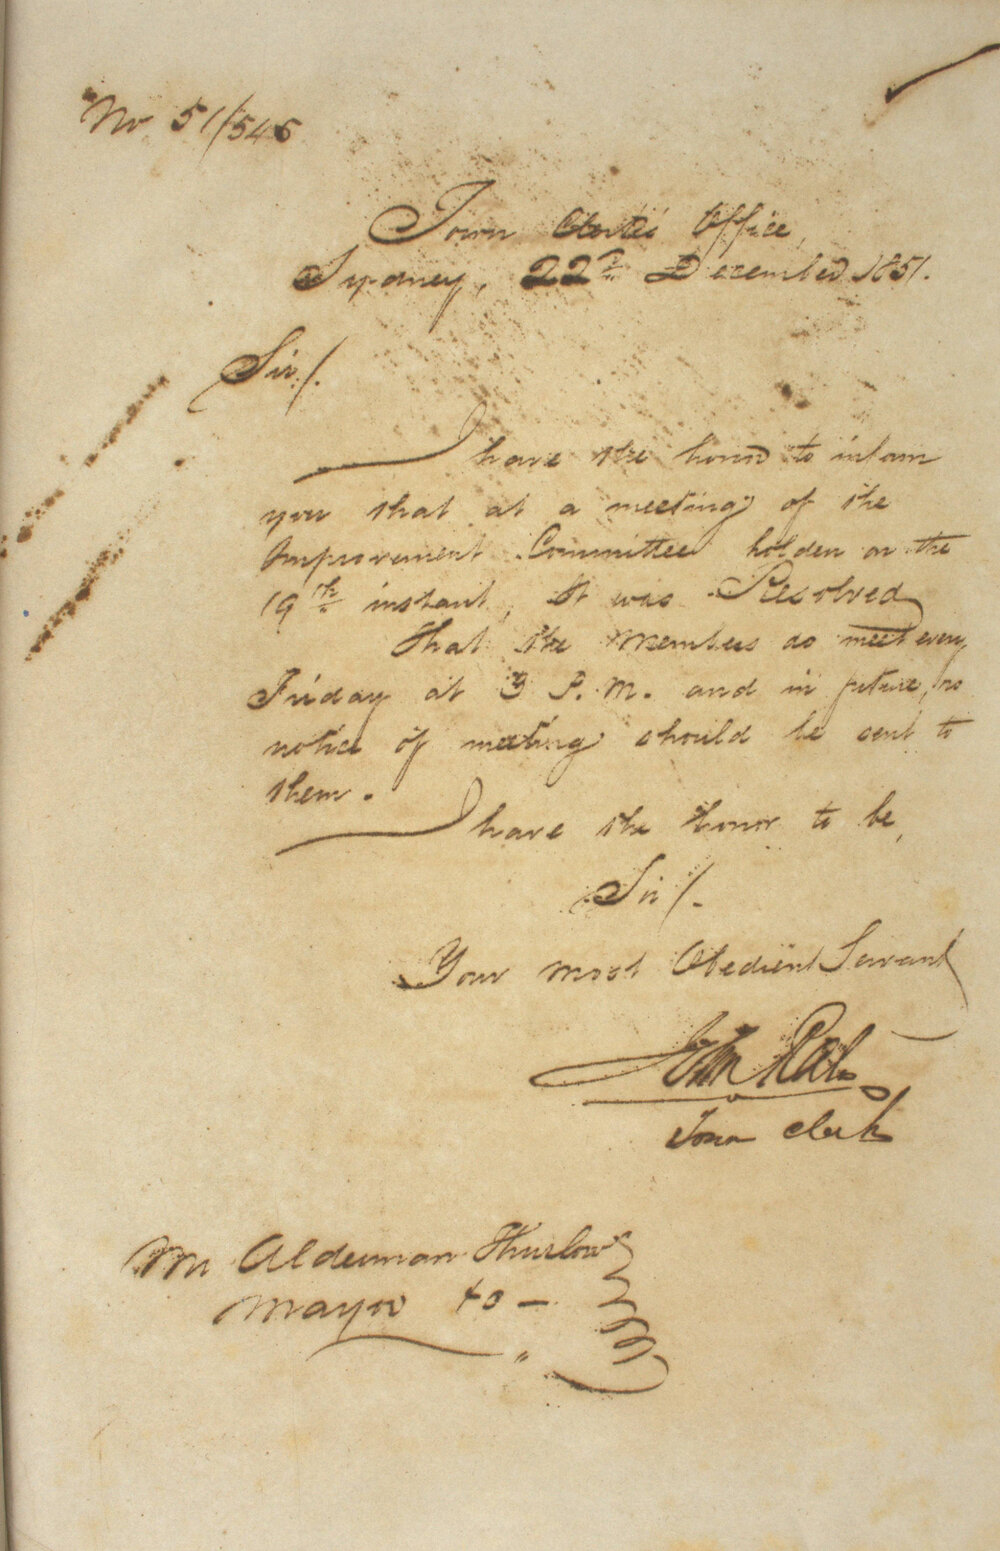 No 51/546
Town Clerk's Office,
Sydney, 22nd December 1851.
Sir/.
I have the honor to inform
you that at a meeting of the
Improvement Committee holden on the
19th instant, It was Resolved
That the Members do meet every
Friday at 3 P.M. and in future, no
notice of meeting should be sent to
them.
I have the honor to be,
Sir/.
Your most Obedient Servant
John Rae
Town Clerk
Mr Alderman Thurlow
Mayor